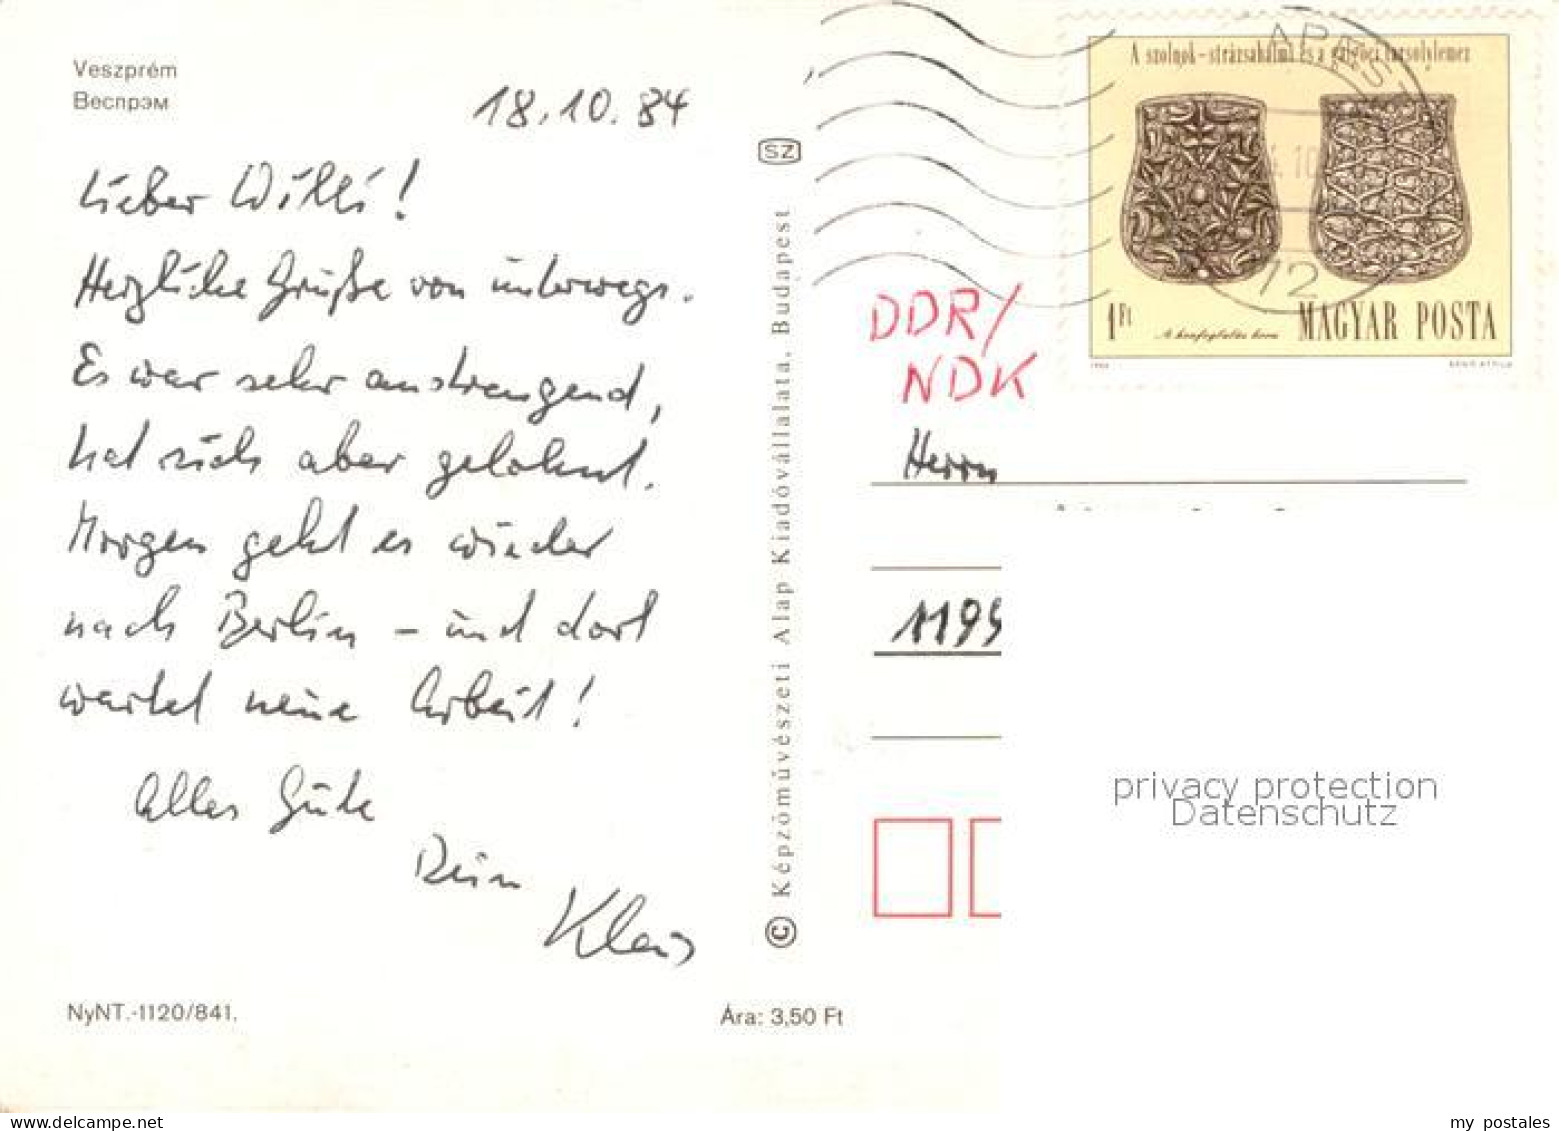 Veszprém
Веспрэм
18.10.84
Lieber Willi!
Herzliche Grüße von unterwegs.
Es war sehr anstrengend,
hat sich aber gelohnt.
Morgen geht es wieder
nach Berlin – und dort
wartet neue Arbeit!
Alles Gute
Dein
Klaus
NyNT.-1120/841.
Ára: 3,50 Ft
SZ
© Képzőművészeti Alap Kiadóvállalata, Budapest
A szolnok-strázsahalmi és a galgóci tarsolylemez
1Ft
A honfoglalás kora
MAGYAR POSTA
APEST
10
12
DDR/
NDK
Herrn
1195
privacy protection
Datenschutz
my postales